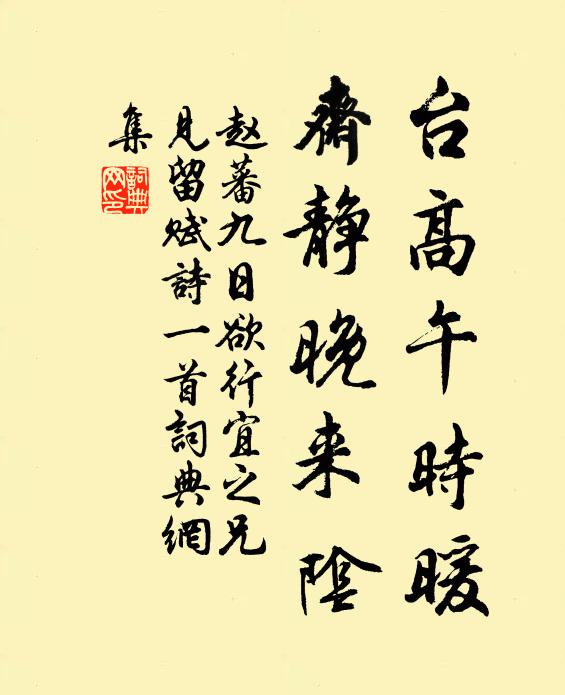 台高午時暖
齋静晚来陰
赵蕃九日欲行宜之兄
見留赋詩一首詞典網
集
詞典
网印